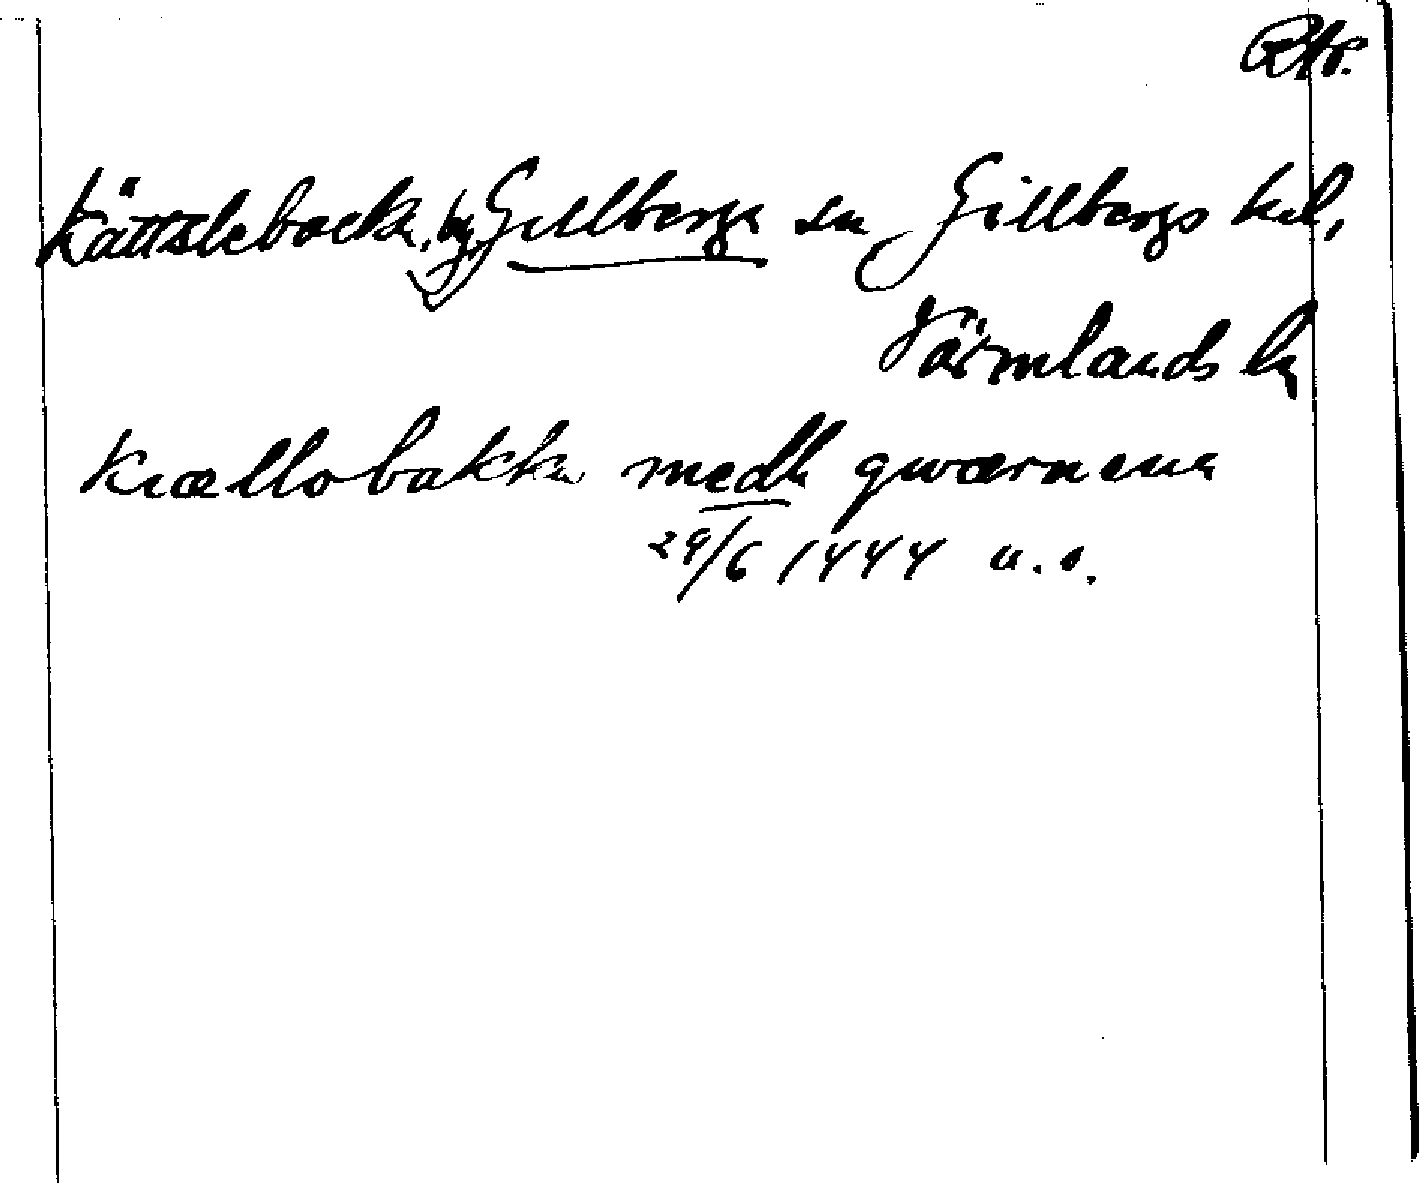 Kättslebacka, by, Gillberga sn Gillbergs hd,
Värmlands ln
kiællobakka medh qwærnena
29/6 1444 u.s.